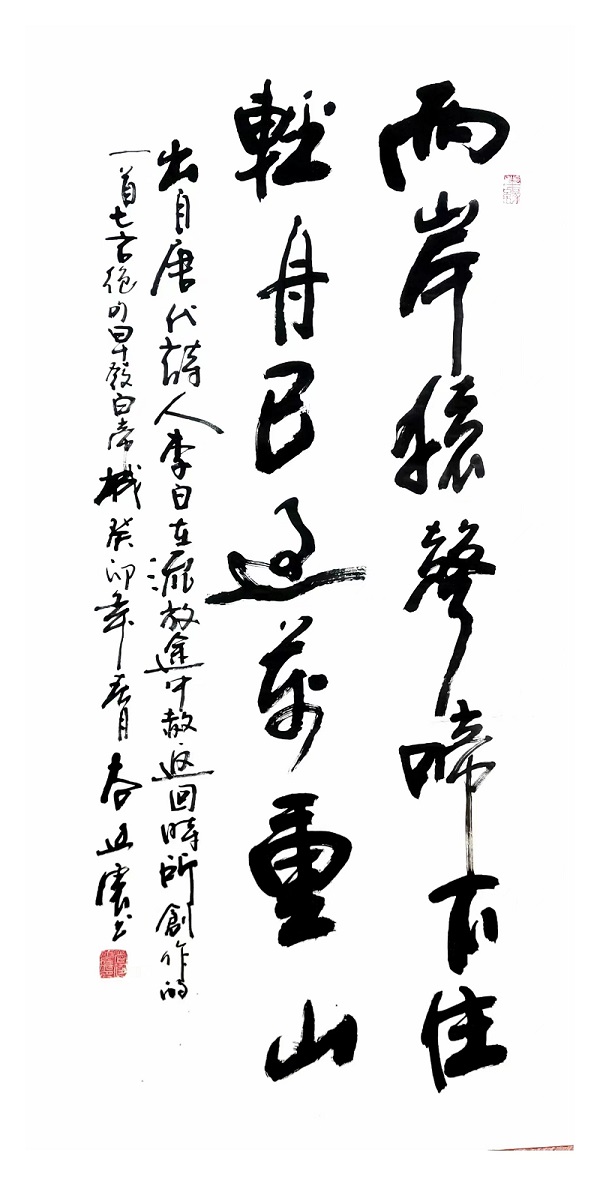 兩岸猿聲啼不住
輕舟已過萬重山
出自唐代詩人李白在流放途中赦返回時所創作的
一首七言絕句早發白帝城癸卯年春月